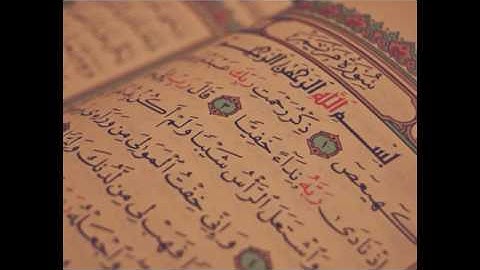 سُورَةُ مَرْيَمَ
بِسْمِ اللَّهِ الرَّحْمَٰنِ الرَّحِيمِ
كٓهيعٓصٓ ١ ذِكْرُ رَحْمَتِ رَبِّكَ
إِذْ نَادَىٰ رَبَّهُ نِدَآءً خَفِيًّا ٣ قَالَ رَبِّ
وَاشْتَعَلَ الرَّأْسُ شَيْبًا وَلَمْ أَكُنْ
وَإِنِّي خِفْتُ الْمَوَالِيَ مِن وَرَآءِي
فَهَبْ لِي مِن لَّدُنكَ
وَاجْعَلْهُ